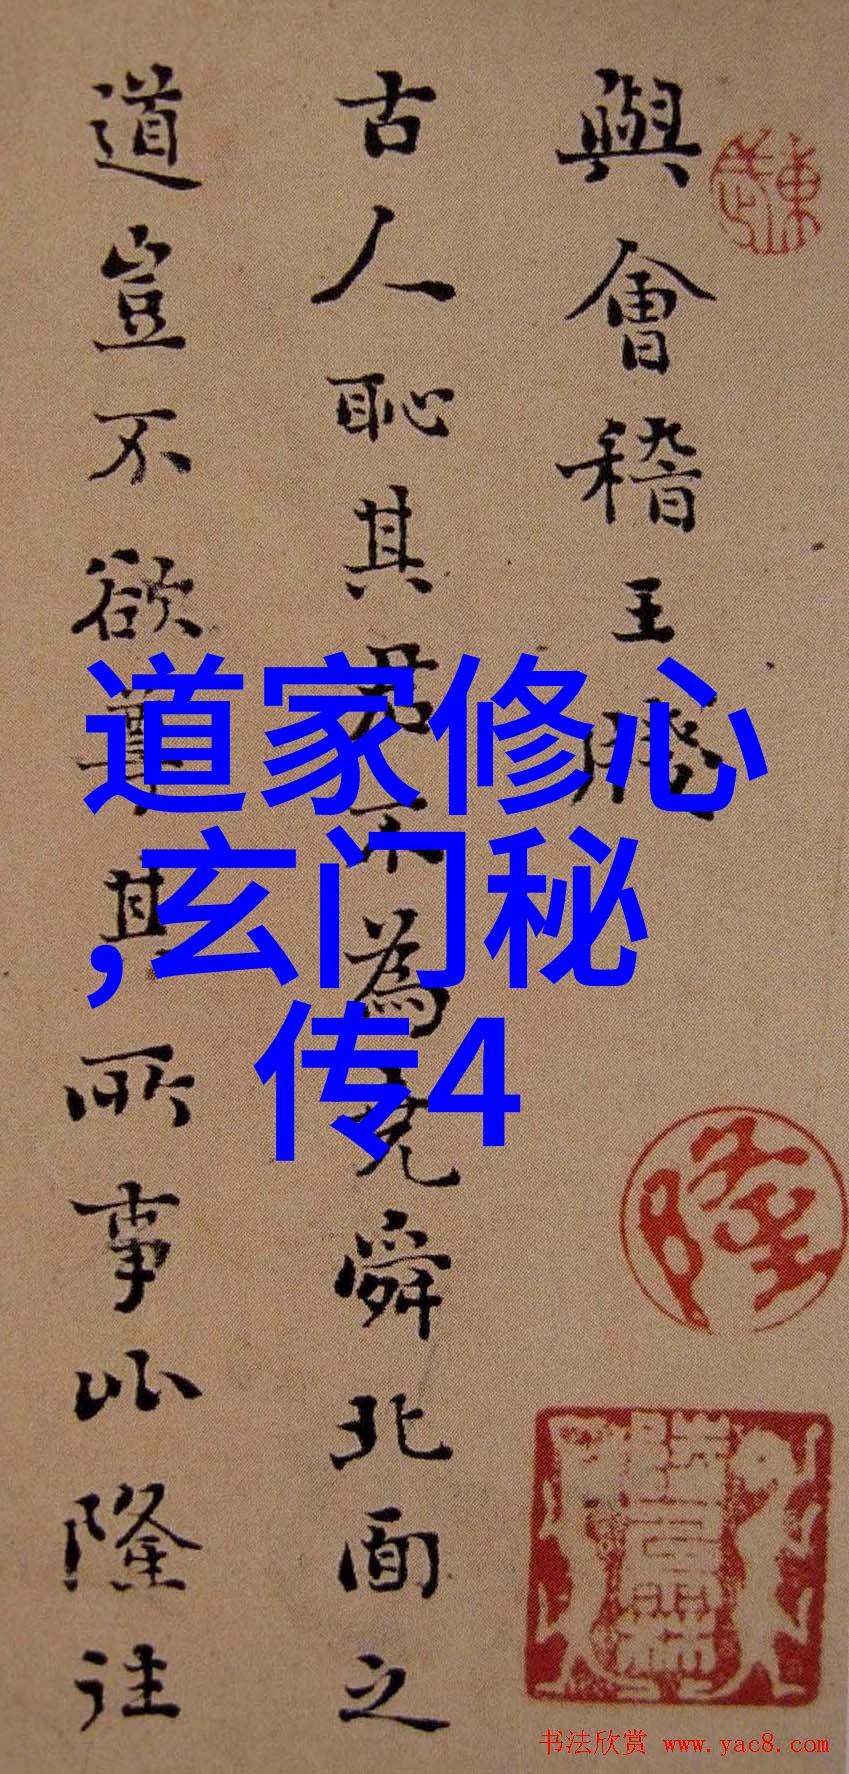 與會稽王牋
古人恥其君不為堯舜北面之
道豈不欲尊其所事比隆往
道家修心
,玄门秘
传4
隆
书法欣赏 www.yac8.com